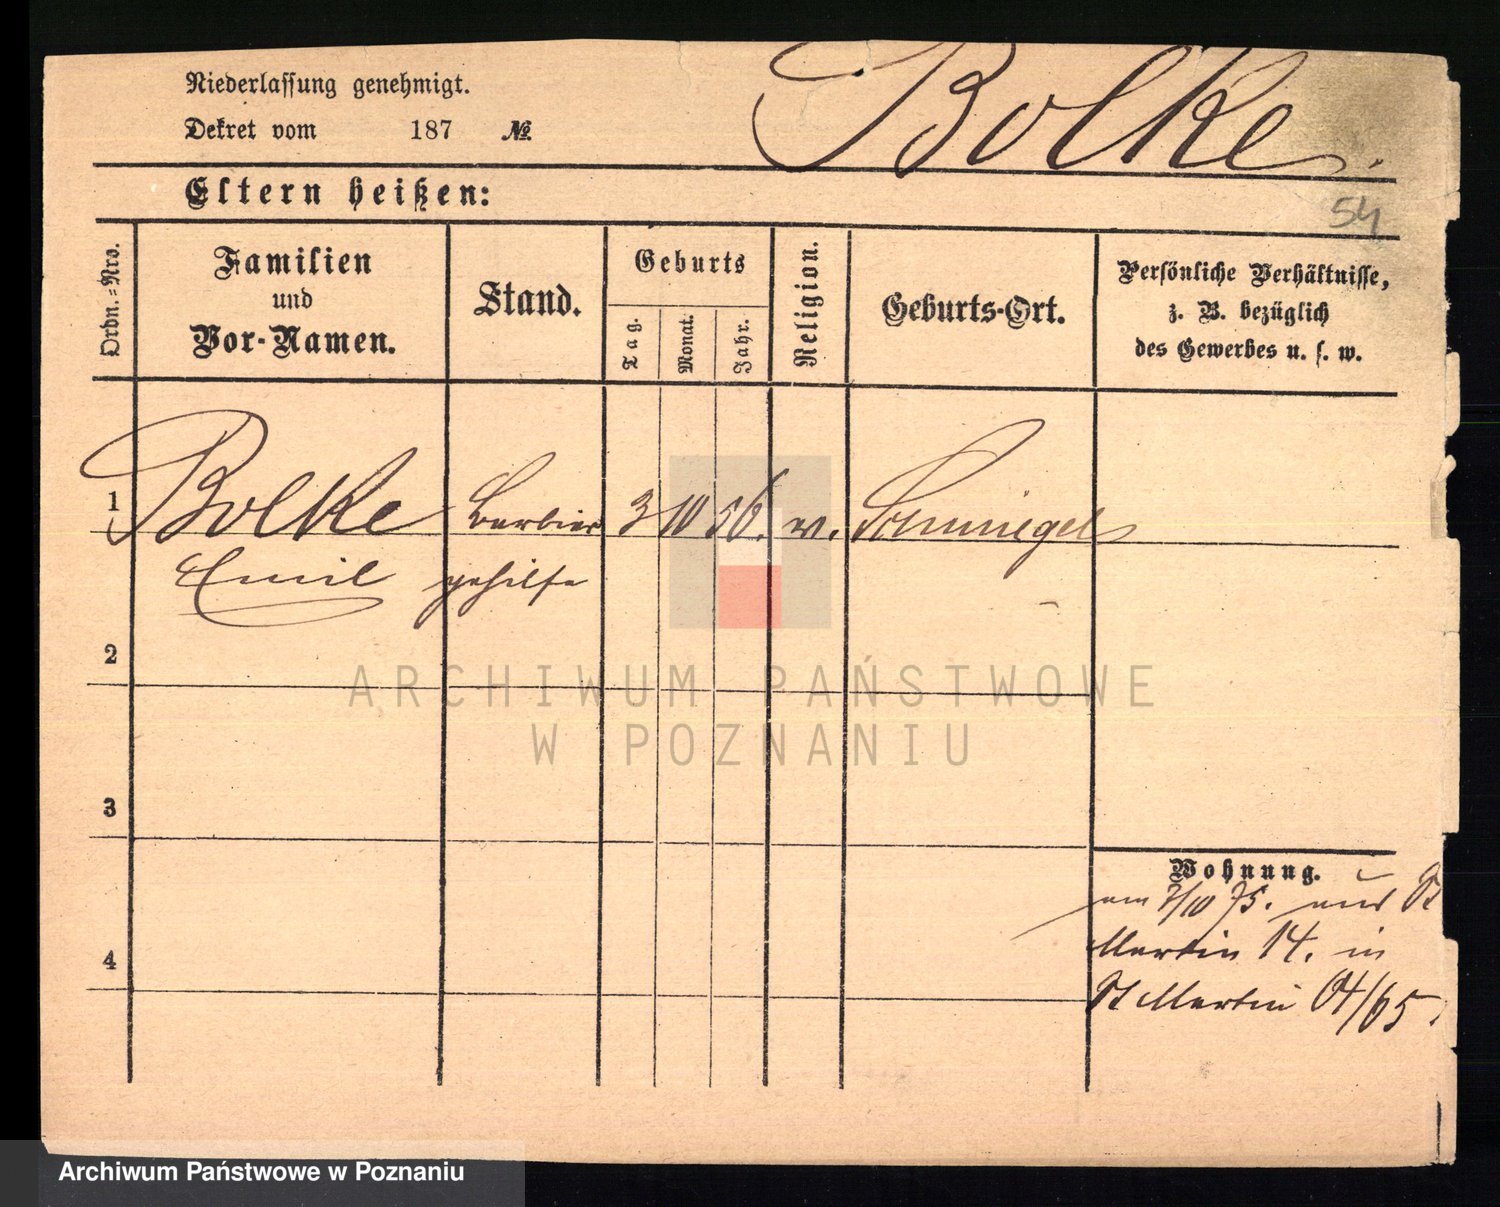 Niederlassung genehmigt.
Dekret vom 187 №
Bolke.
54
Eltern heißen:
Ordn.=Nro.
Familien und Vor-Namen.
Stand.
Geburts
Tag.
Monat.
Jahr.
Religion.
Geburts-Ort.
Persönliche Verhältnisse,
z. B. bezüglich
des Gewerbes u. s. w.
1 Bolke Barbier 3 10 56. Schmiegel
Emil gehilfe
2
3
4
Wohnung.
am 7/10 75. aus St
Martin 14. in
St Martin 64/65.
ARCHIWUM PAŃSTWOWE
W POZNANIU
Archiwum Państwowe w Poznaniu